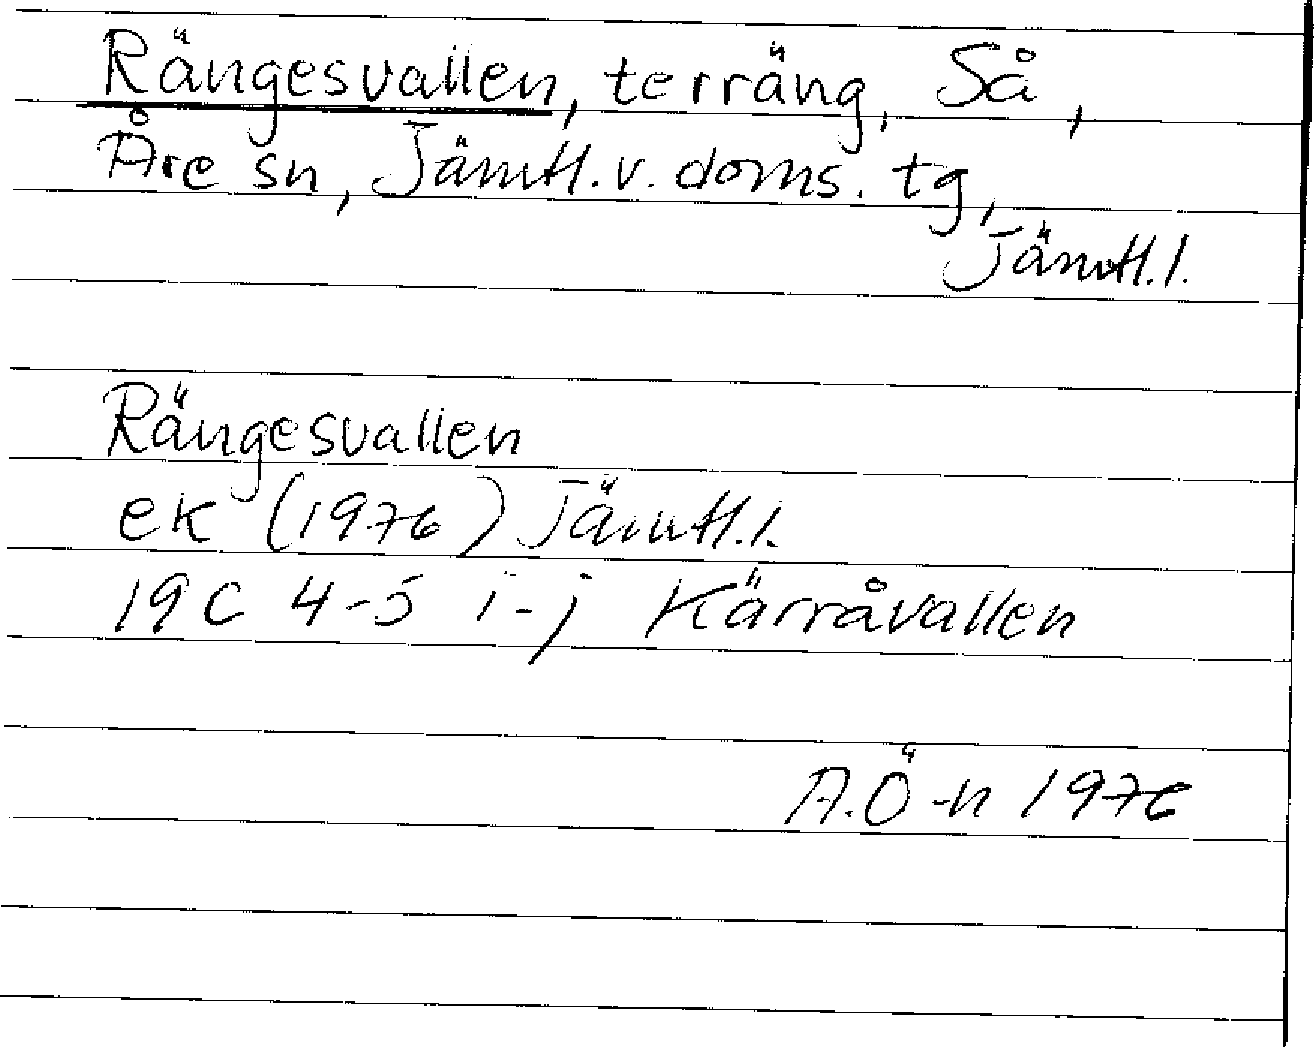 Rängesvallen, terräng, Så,
Åre sn, Jämtl. v. doms. tg,
Jämtl. l.
Rängesvallen
ek (1976) Jämtl. l.
19C 4-5 i-j Kärråvallen
A.Ö-n 1976